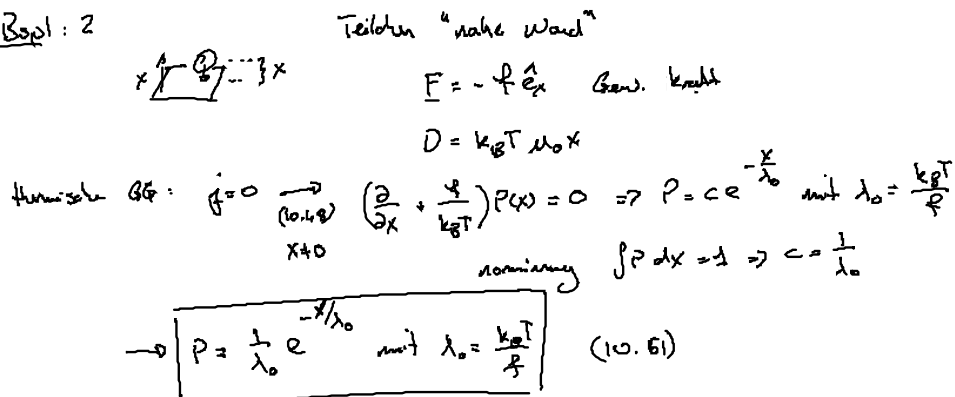 Bspl: 2 Teilchen "nahe Wand"
x } x
F = - f ê_x Gew. kraft
D = k_BT μ_0 x
thermische GG: j=0 ⟶ (10.48) x≠0 (∂/∂x + f/k_BT) P(x) = 0 => P = c e^{-x/λ_0} mit λ_0 = k_BT/f
normierung ∫P dx = 1 => c = 1/λ_0
→ P = 1/λ_0 e^{-x/λ_0} mit λ_0 = k_BT/f (10.51)